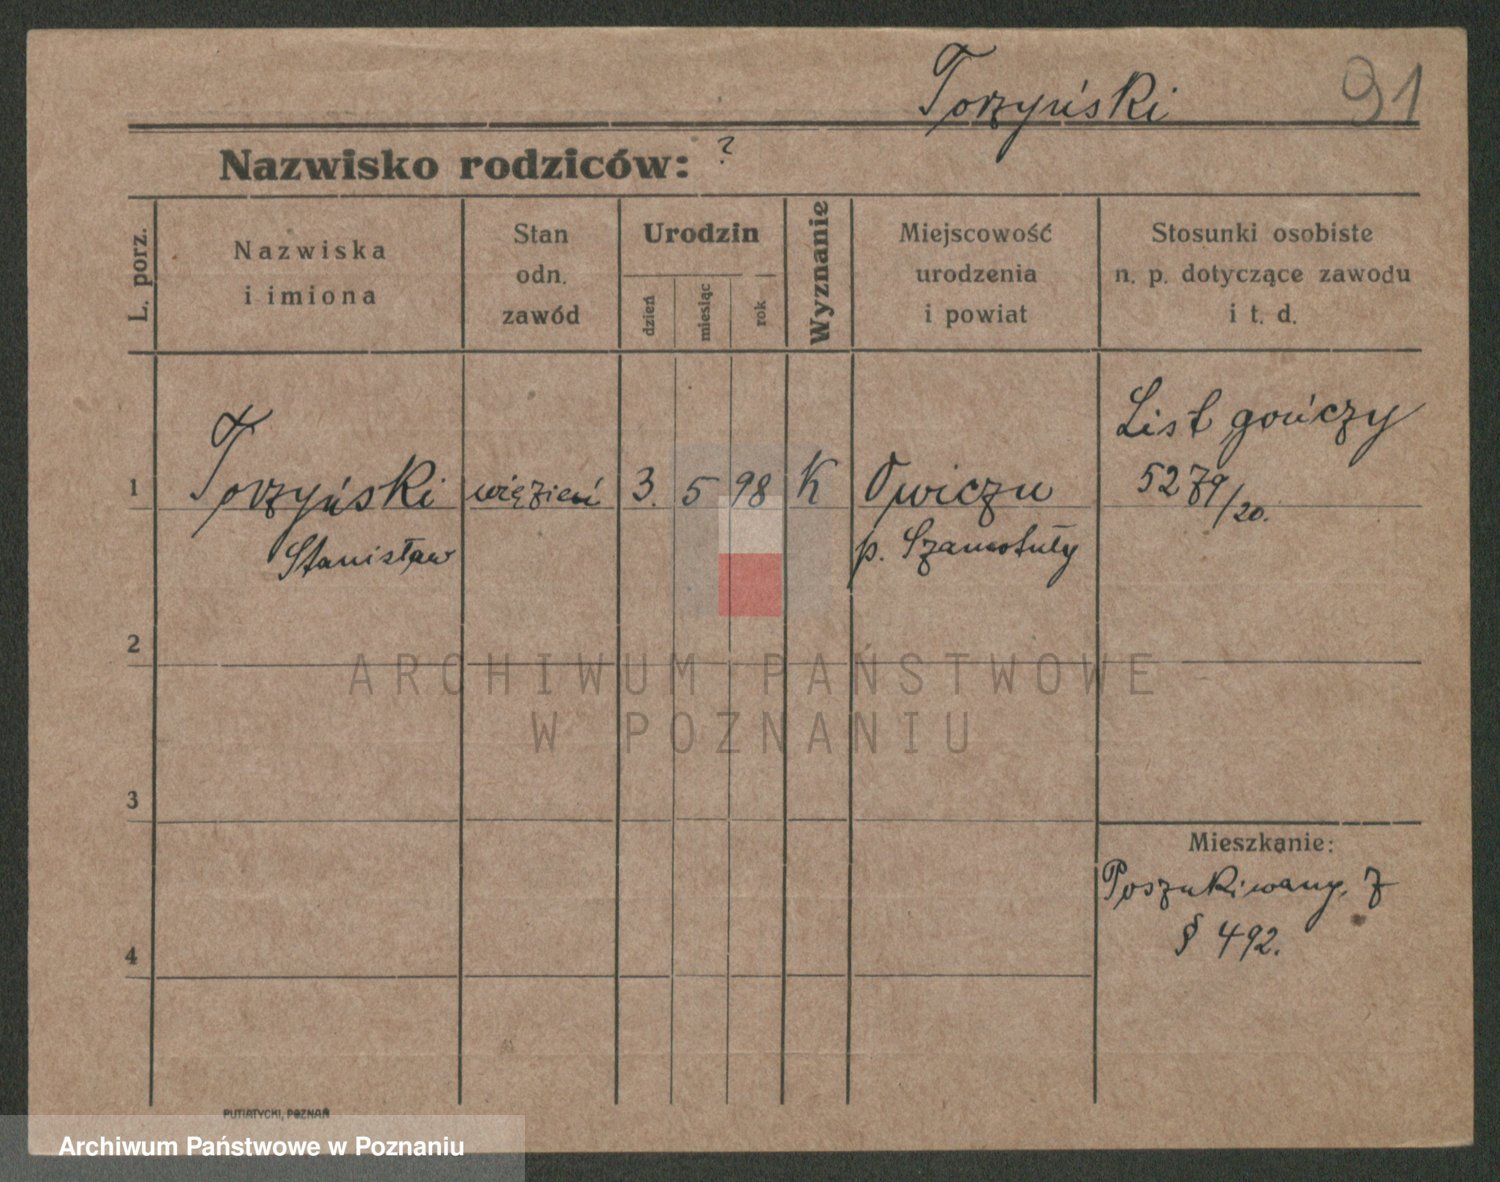 Torzyński 91
Nazwisko rodziców: ?
L. porz.
Nazwiska
i imiona
Stan
odn.
zawód
Urodzin
dzień
miesiąc
rok
Wyznanie
Miejscowość
urodzenia
i powiat
Stosunki osobiste
n. p. dotyczące zawodu
i t. d.
1
Torzyński
Stanisław
więzień
3. 5 98
K
Owiczu
p. Szamotuły
List gończy
5279/20.
2
3
4
Mieszkanie:
Poszukiwany. z
§ 492.
ARCHIWUM PAŃSTWOWE
W POZNANIU
PUTIATYCKI, POZNAŃ
Archiwum Państwowe w Poznaniu